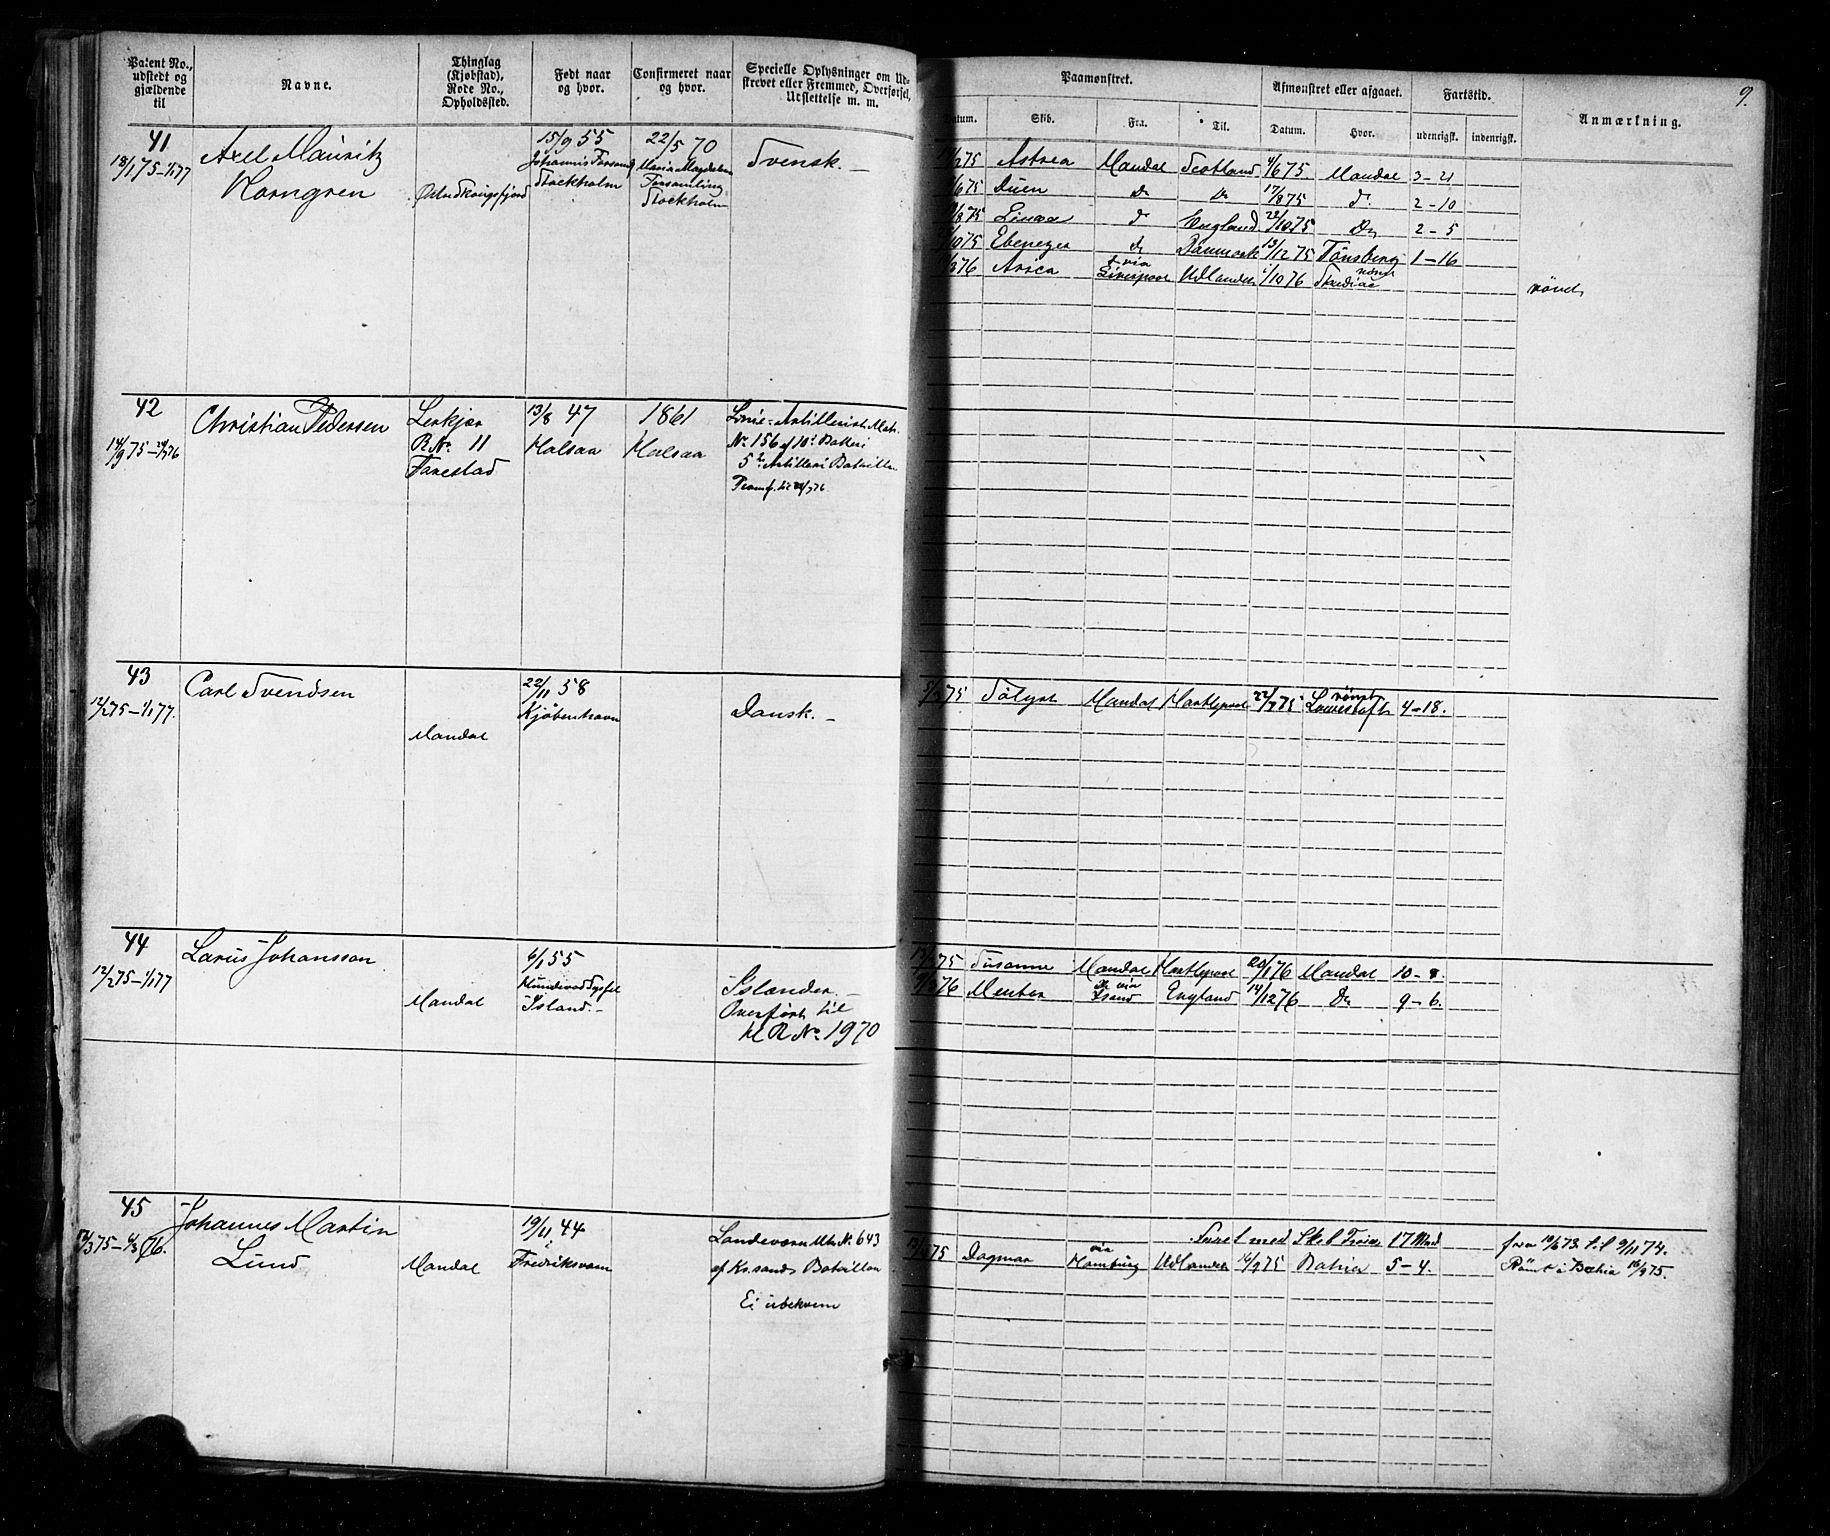 9.
Patent No., udstedt og gjældende til
Navne.
Thinglag (Kjøbstad), Rode No., Opholdssted.
Født naar og hvor.
Confirmeret naar og hvor.
Specielle Oplysninger om Udskrevet eller Fremmed, Overførsel, Udslettelse m. m.
Paamønstret.
Datum.
Skib.
Fra.
Til.
Afmønstret eller afgaaet.
Datum.
Hvor.
Fartstid.
udenrigsk.
indenrigsk.
Anmærkning.
41
18/1 75 - 1/1 77
Axel Mauritz
Korngren
15/9 55
Johannis Forsamlg
Stockholm
22/5 70
Maria Magdalena
Forsamling
Stockholm
Svensk. -
/2 75 Astrea Mandal Scotland 4/6 75 Mandal 3 - 21
/6 75 Duen Do Do 17/8 75 Do 2 - 10
/8 75 do England 22/10 75 Do 2 - 5
/10 75 Ebenezer do Danmark 13/12 75 Tönsberg 1 - 16
/3 76 Arica via Liverpool Udlandet 1/10 76 römt
römt
42
14/9 75 - 24/7 76
Christian Pedersen
Lerkjær
R No. 11
Tarestad
13/8 47
Halsaa
1861
Halsaa
Linie-Artillerist Matr.
No 156 af 10de Batteri
5te Artilleri Bataillon
43
12/2 75 - 1/1 77.
Carl Svendsen
Mandal
22/11 58
Kjøbenhavn
Dansk. -
5/ 75 Mandal Hartlepool 22/7 75 römt Lowestoft 4 - 18.
44
12/2 75 - 1/1 77
Larus Johansson
Mandal
6/1 55
Island. -
Islænder. -
Overført til
hl R No. 1970
75 Susanne Mandal Hartlepool 20/1 76 Mandal 10 - 8.
/3 76 Mentor Do via England 14/12 76 Do 9 - 6.
45
12/3 75 - 6/3 76.
Johannes Martin
Lund
Mandal
19/11 44
Fredriksværn
Landeværn Mtr N. 643
af Kr.sands Bataillon
Ei ubekvem
Faret med Skib 17 Mnd fra 10/6 73 til 9/11 74.
75 Dagmar via Hamburg Udlandet 16/9 75 Bahia 5 - 4. Römt i Bahia 16/9 75.